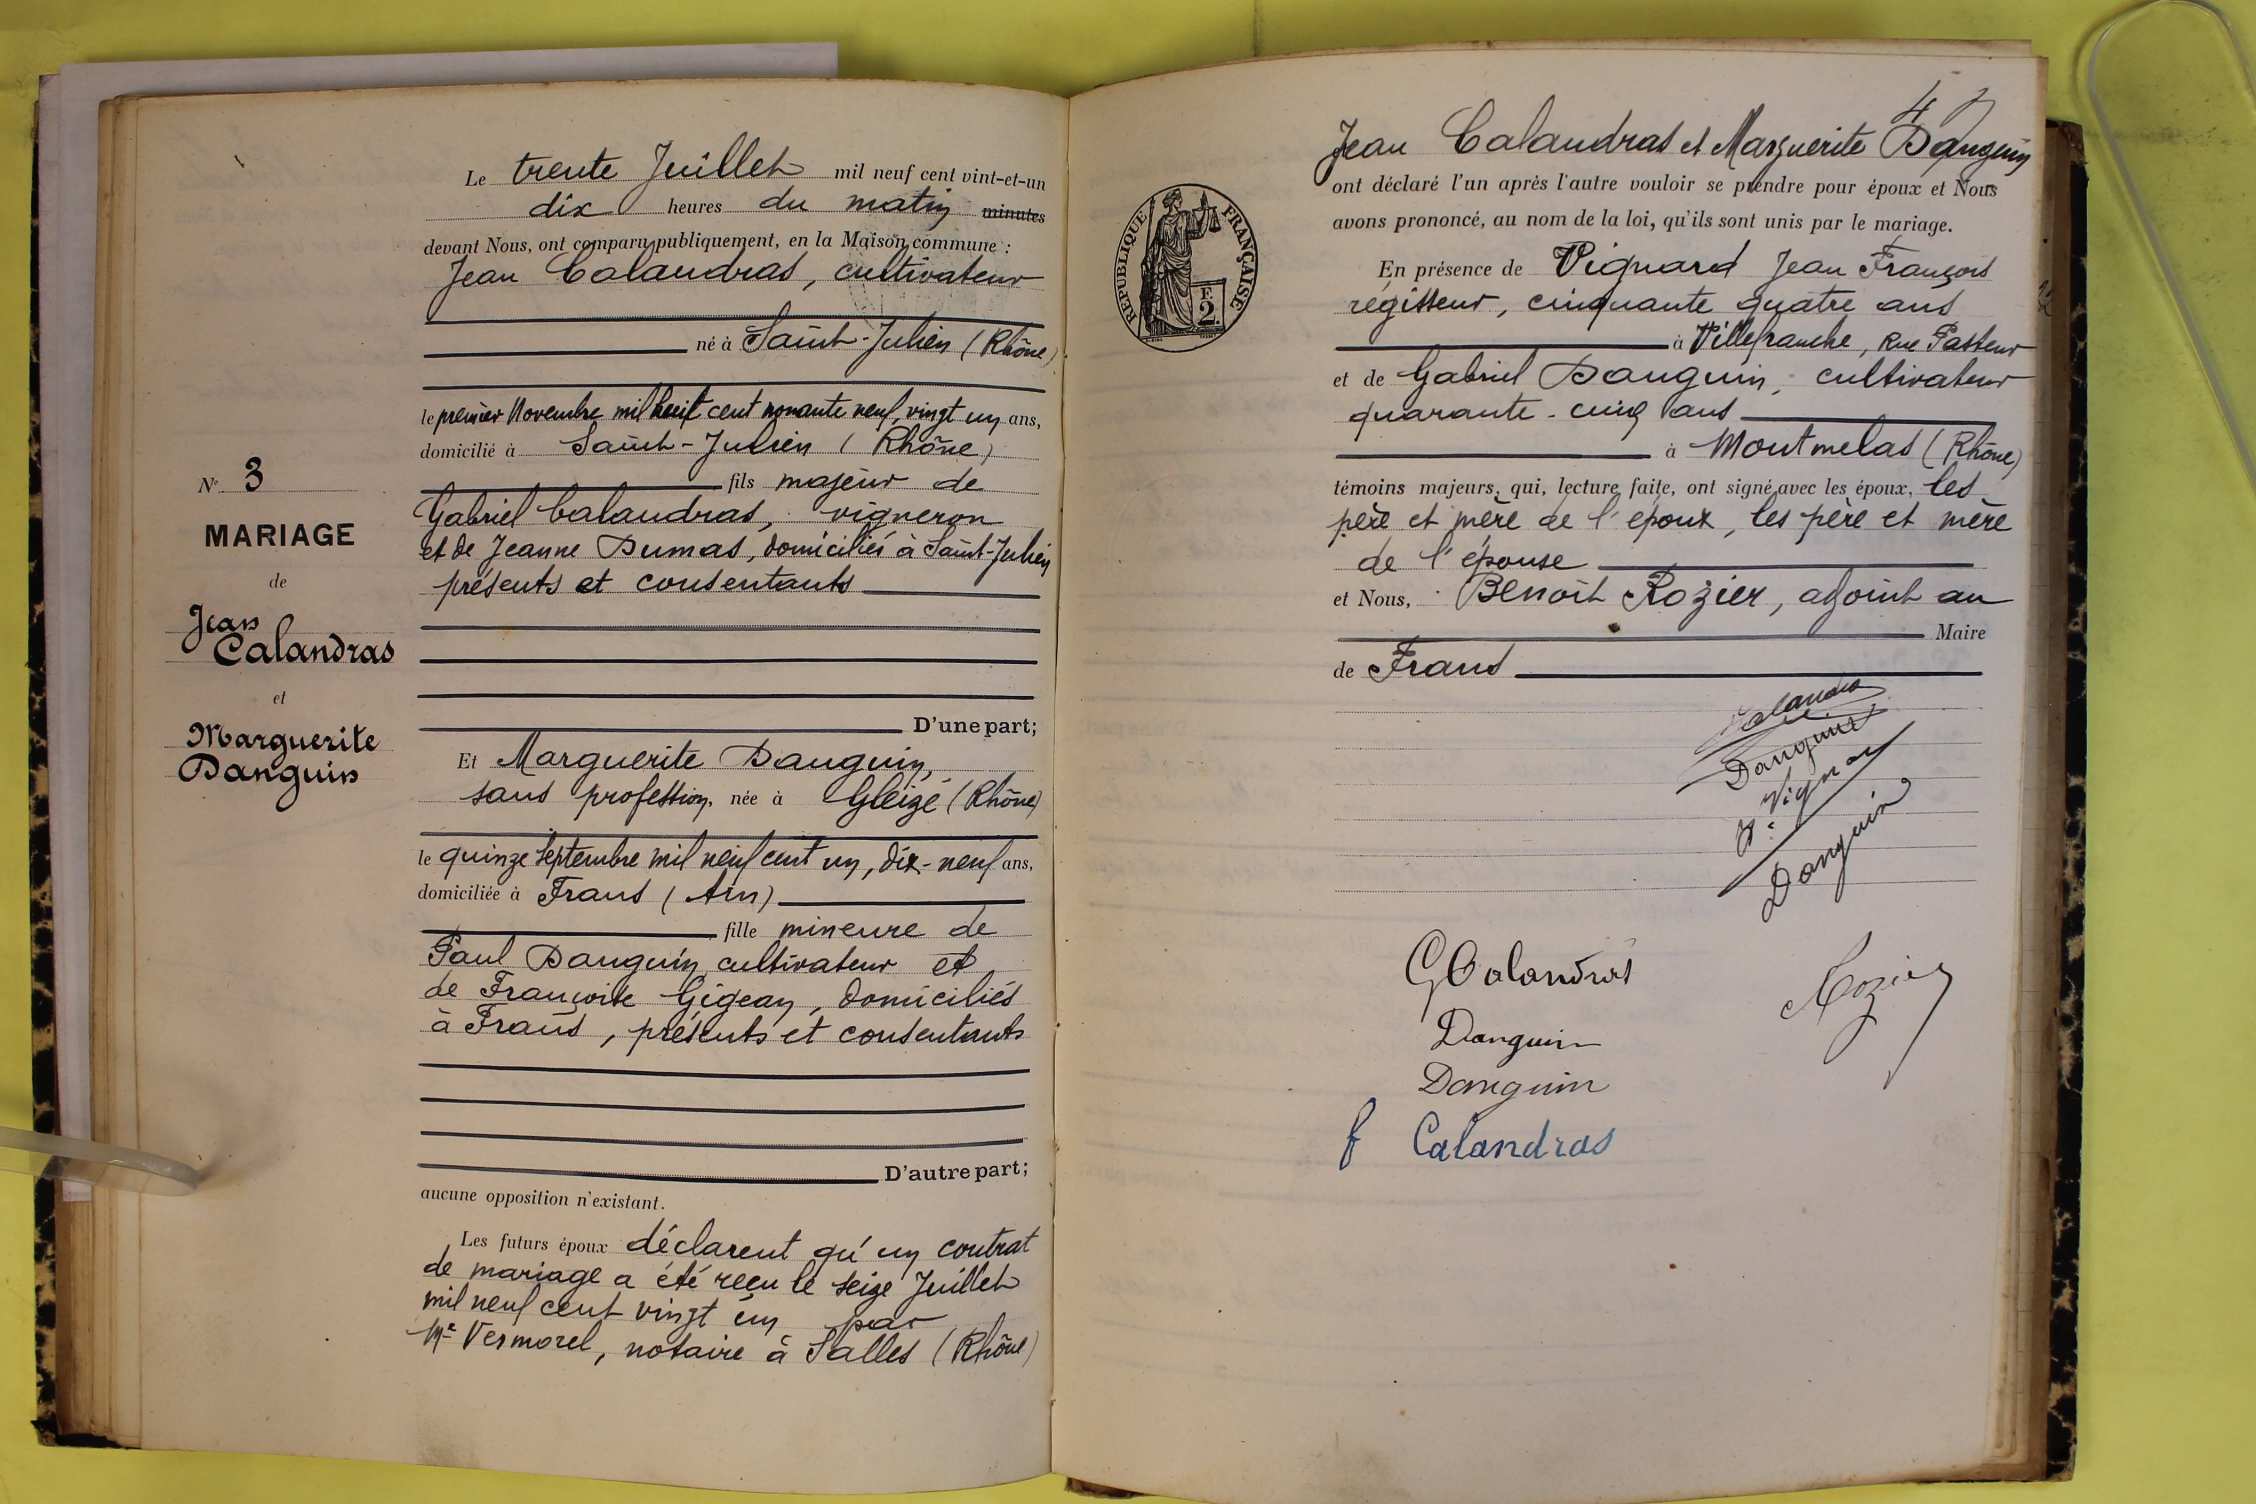 Le trente Juillet mil neuf cent vint-et-un
dix heures du matin minutes
devant Nous, ont comparu publiquement, en la Maison commune :
Jean Calandras, cultivateur
né à Saint-Julien (Rhône)
le premier Novembre mil huit cent nonante neuf, vingt un ans,
domicilié à Saint-Julien (Rhône)
fils majeur de
Gabriel Calandras, vigneron
et de Jeanne Dumas, domiciliés à Saint-Julien
présents et consentants
D'une part;
Et Marguerite Danguin,
sans profession, née à Gleizé (Rhône)
le quinze Septembre mil neuf cent un, dix-neuf ans,
domiciliée à Frans (Ain)
fille mineure de
Paul Danguin cultivateur et
de Françoise Gigean, domiciliés
à Frans, présents et consentants
D'autre part;
aucune opposition n'existant.
Les futurs époux déclarent qu'un contrat
de mariage a été reçu le seize Juillet
mil neuf cent vingt un par
Me Vermorel, notaire à Salles (Rhône)
No 3
MARIAGE
de
Jean
Calandras
et
Marguerite
Danguin
4
Jean Calandras et Marguerite Danguin
ont déclaré l'un après l'autre vouloir se prendre pour époux et Nous
avons prononcé, au nom de la loi, qu'ils sont unis par le mariage.
RÉPUBLIQUE FRANÇAISE
F.
2
En présence de Vignard Jean François
régisseur, cinquante quatre ans
à Villefranche, Rue Pasteur
et de Gabriel Danguin, cultivateur
quarante-cinq ans
à Montmelas (Rhône)
témoins majeurs, qui, lecture faite, ont signé avec les époux, les
père et mère de l'époux, les père et mère
de l'épouse
et Nous, Benoît Rozier, adjoint au
Maire
de Frans
Calandras
Danguin
Vignard
Danguin
G Calandras
Rozier
Danguin
Danguin
f Calandras